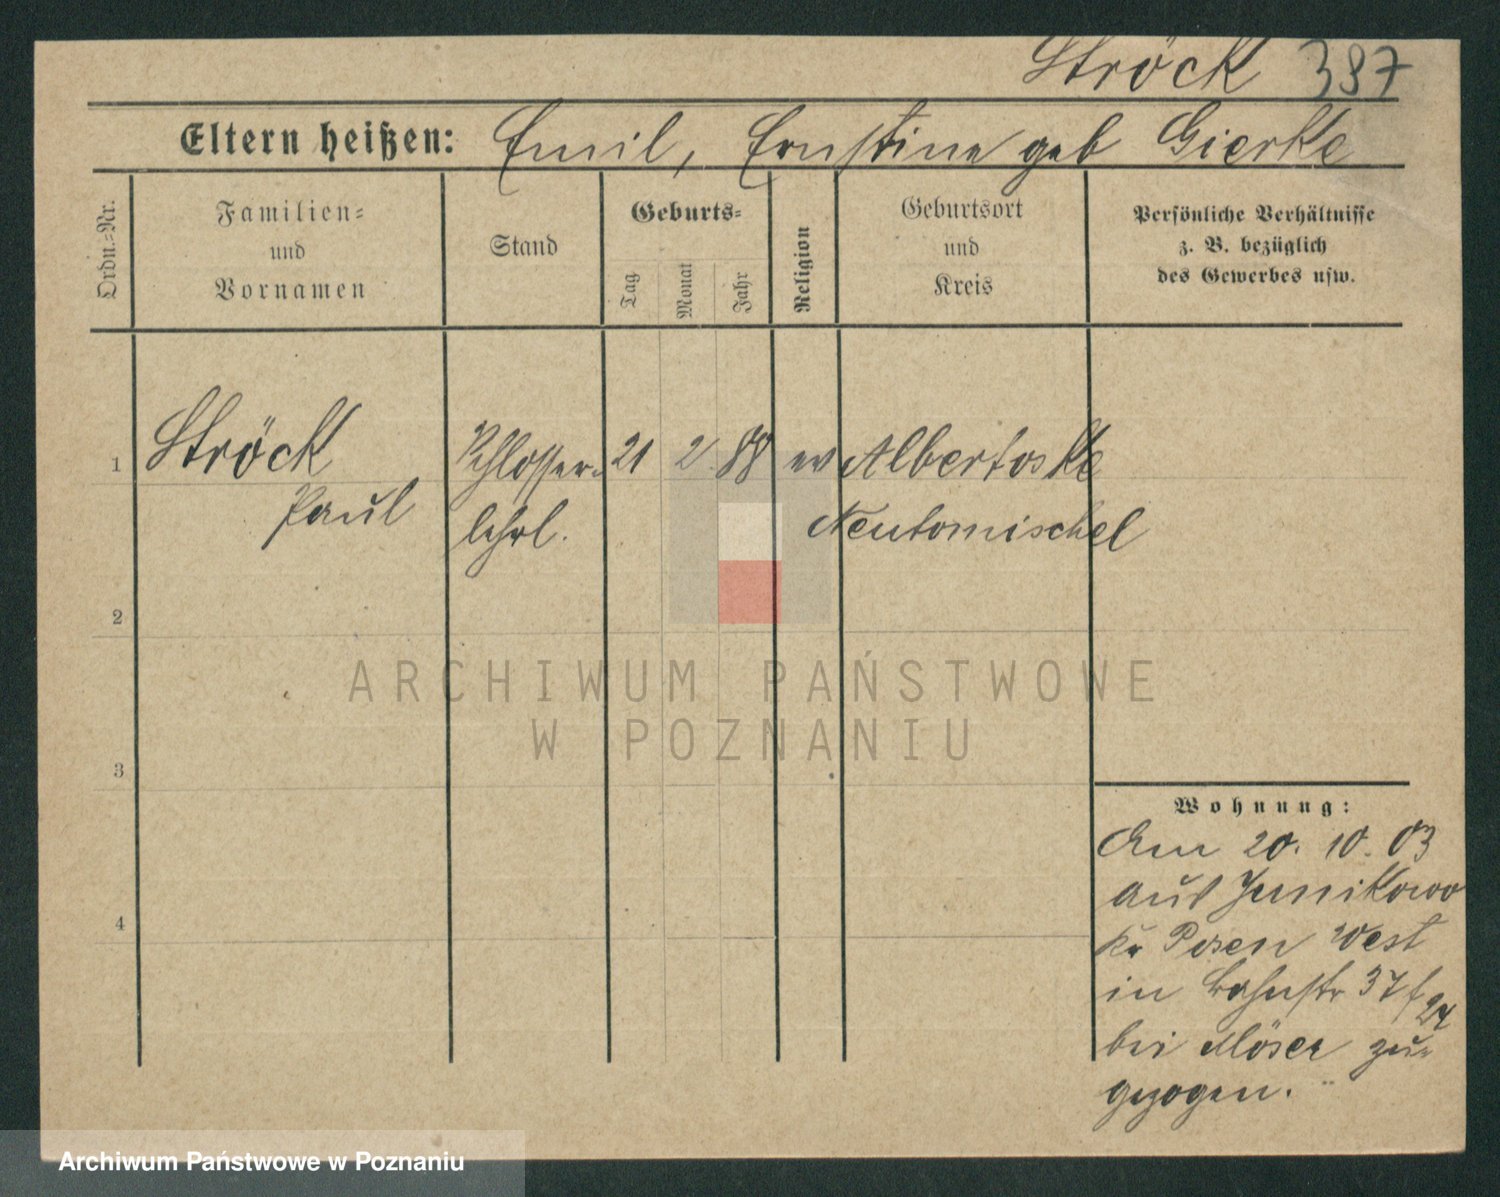 Ströck 387
Eltern heißen: Emil, Ernstine geb Gierke
Ordn.-Nr.
Familien-
und
Vornamen
Stand
Geburts-
Tag
Monat
Jahr
Religion
Geburtsort
und
Kreis
Persönliche Verhältnisse
z. B. bezüglich
des Gewerbes usw.
1 Ströck Schlosser- 21 2. 88 ev Albertoske
Paul lehrl. Neutomischel
2
3
4
Wohnung:
Am 20. 10. 03
aus Junikowo
Kr Posen West
in Bahnstr 37
bei Möser zu-
gezogen.
ARCHIWUM PAŃSTWOWE
W POZNANIU
Archiwum Państwowe w Poznaniu